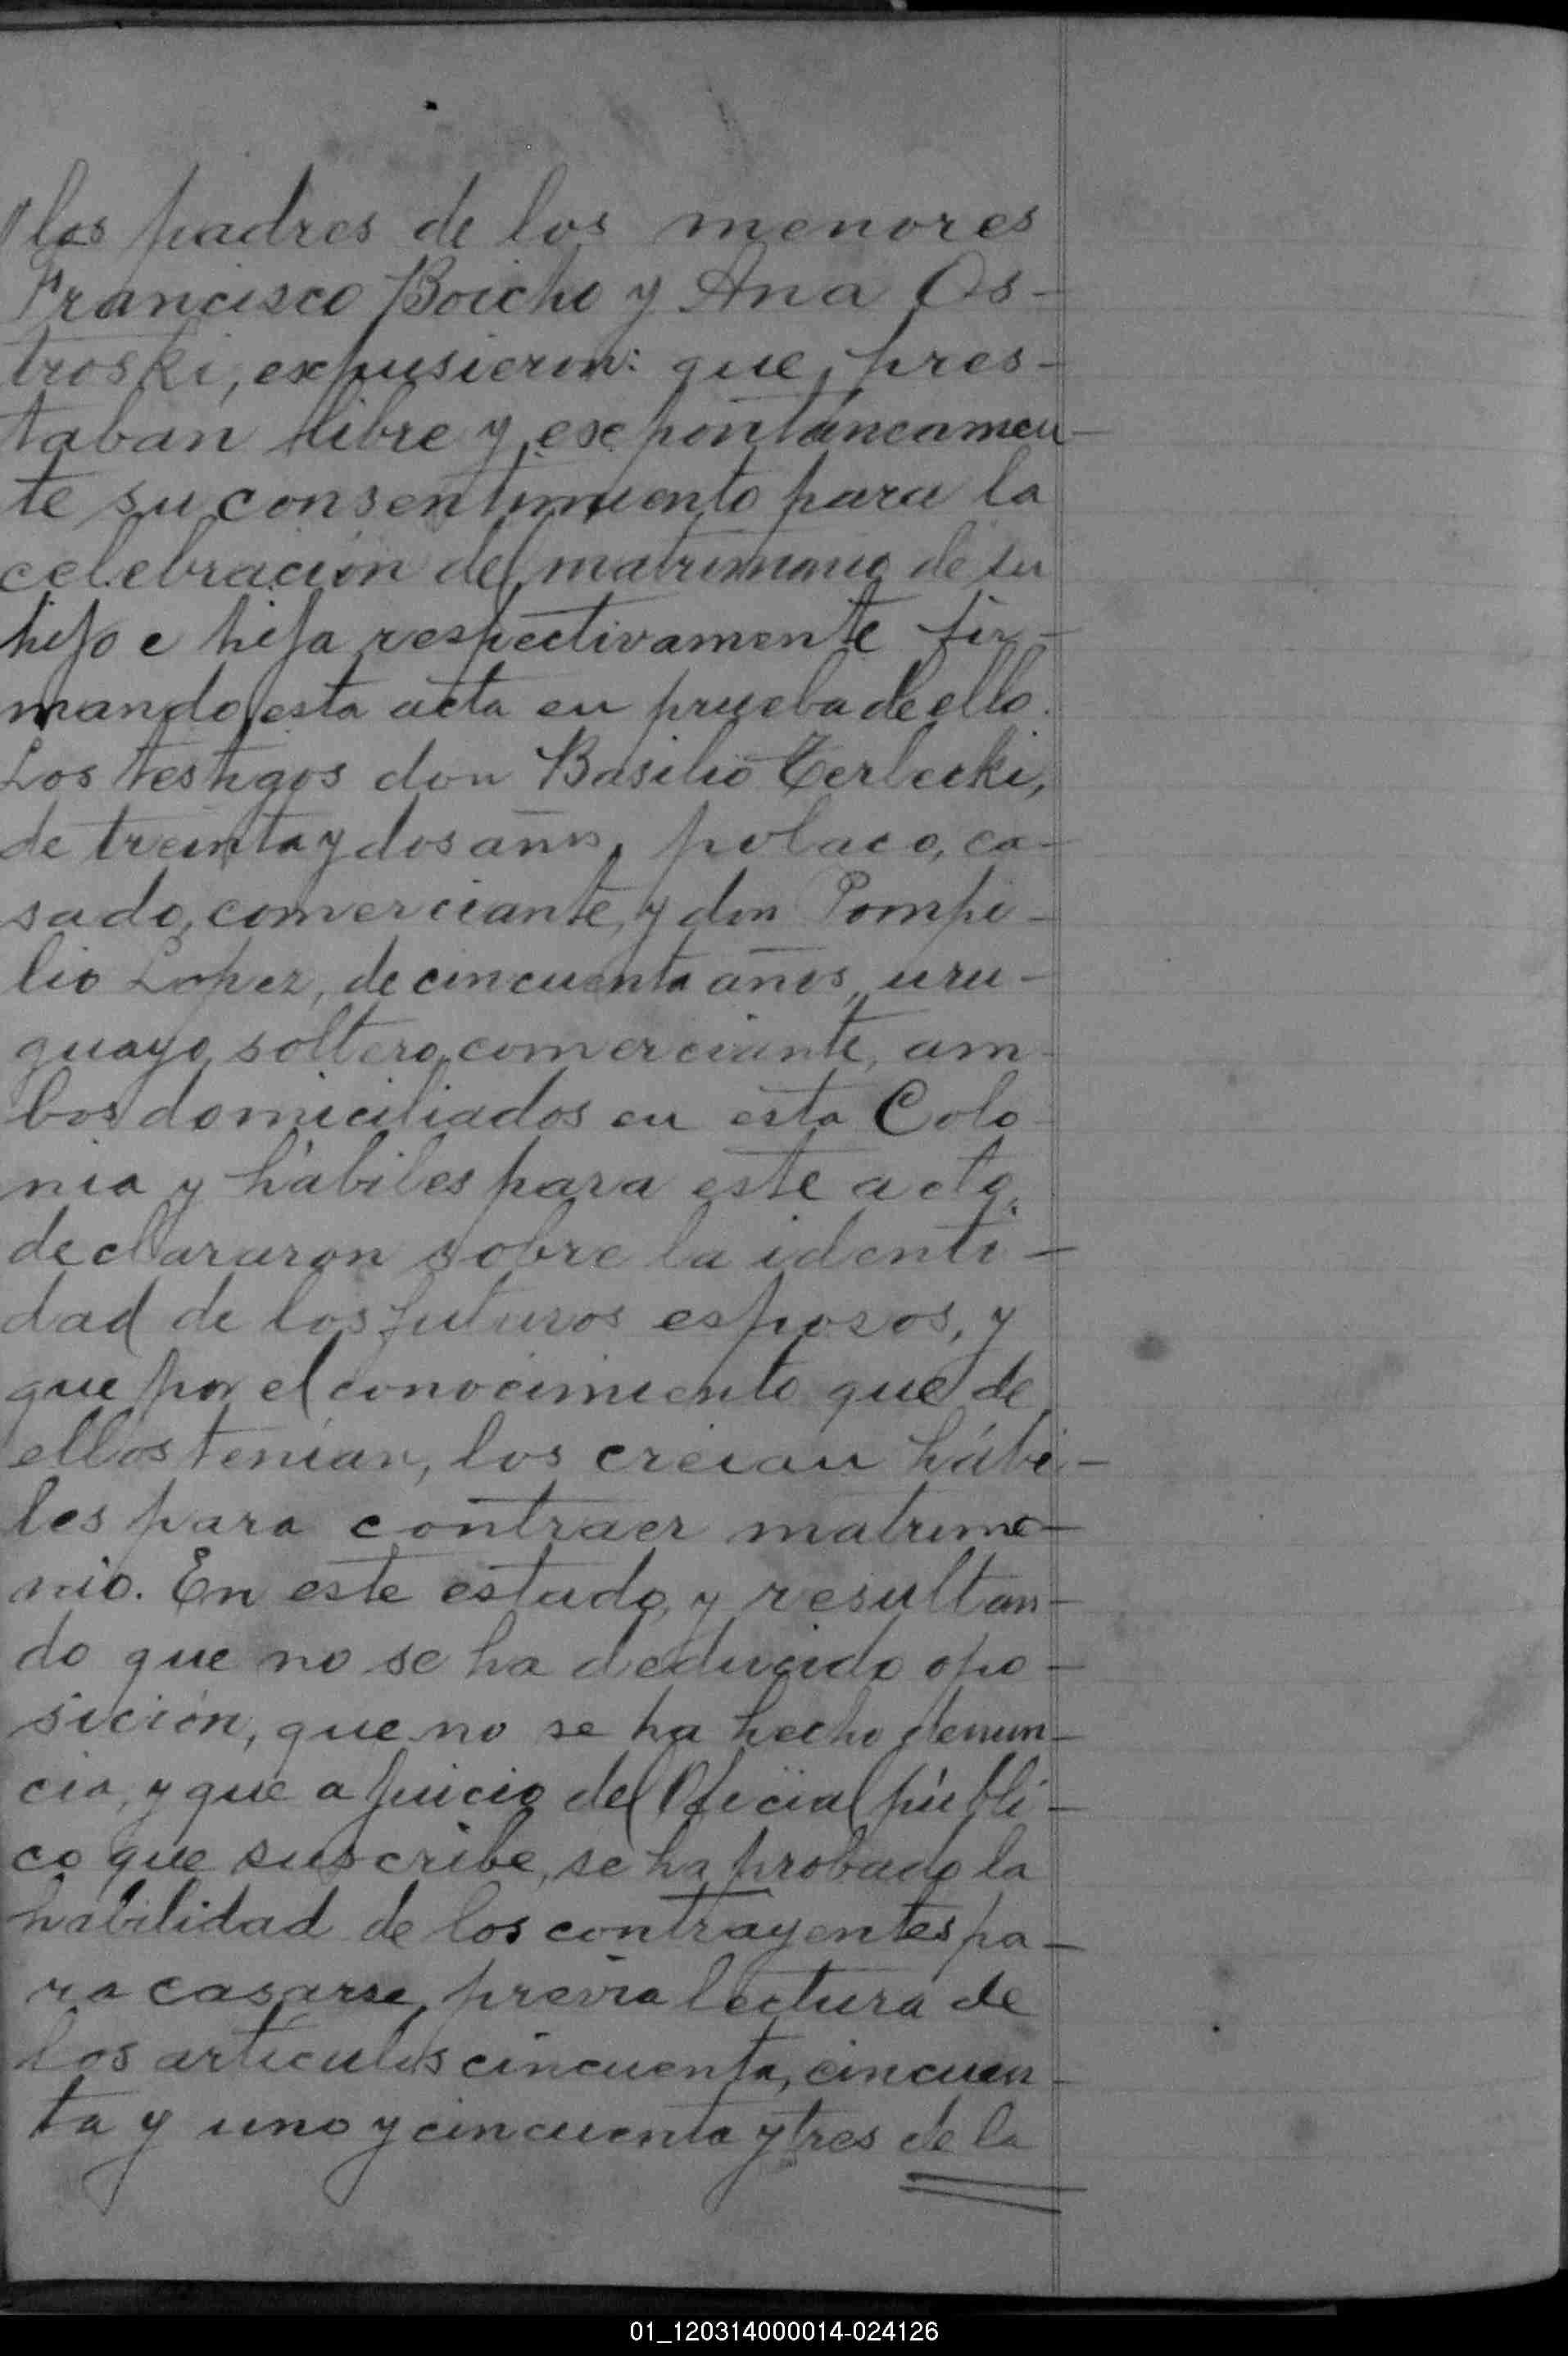 los padres de los menores
Francisco Boicho y Ana Os-
troski, expusieron: que, pres-
taban libre y expontáneamen-
te su consentimiento para la
celebración del matrimonio de su
hijo e hija respectivamente fir-
mando esta acta en prueba de ello.
Los testigos don Basilio Terlecki,
de treinta y dos años, polaco, ca-
sado, comerciante, y don Pompi-
lio Lopez, de cincuenta años, uru-
guayo, soltero, comerciante, am-
bos domiciliados en esta Colo-
nia y hábiles para este acto,
declararon sobre la identi-
dad de los futuros esposos, y
que por el conocimiento que de
ellos tenían, los creían hábi-
les para contraer matrimo-
nio. En este estado, y resultan-
do que no se ha deducido opo-
sición, que no se ha hecho denun-
cia, y que a juicio del Oficial públi-
co que suscribe, se ha probado la
habilidad de los contrayentes pa-
ra casarse, previa lectura de
los artículos cincuenta, cincuen-
ta y uno y cincuenta y tres de la
01_120314000014-024126